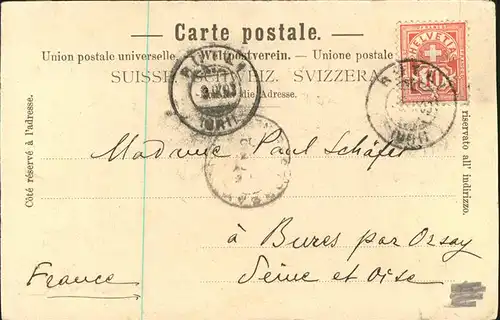 Carte postale.
Union postale universelle. Weltpostverein. Unione postale
SUISSE. SVIZZERA
die Adresse.
HELVETIA
10
Côté réservé à l'adresse.
riservato all' indirizzo.
Madame Paul Schäfer
à Bures par Orsay
Seine et Oise
France